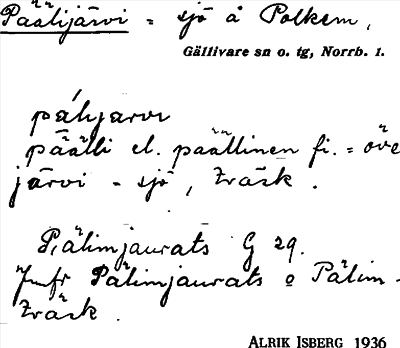 Päälijärvi = sjö å Polkem,
Gällivare sn o. tg, Norrb. l.
pálijarvi
päälli el. päällinen fi. = öve
järvi = sjö, träsk.
Pälimjaurats G 29.
Jmfr Pälimjaurats o Pälim-
träsk.
ALRIK ISBERG 1936